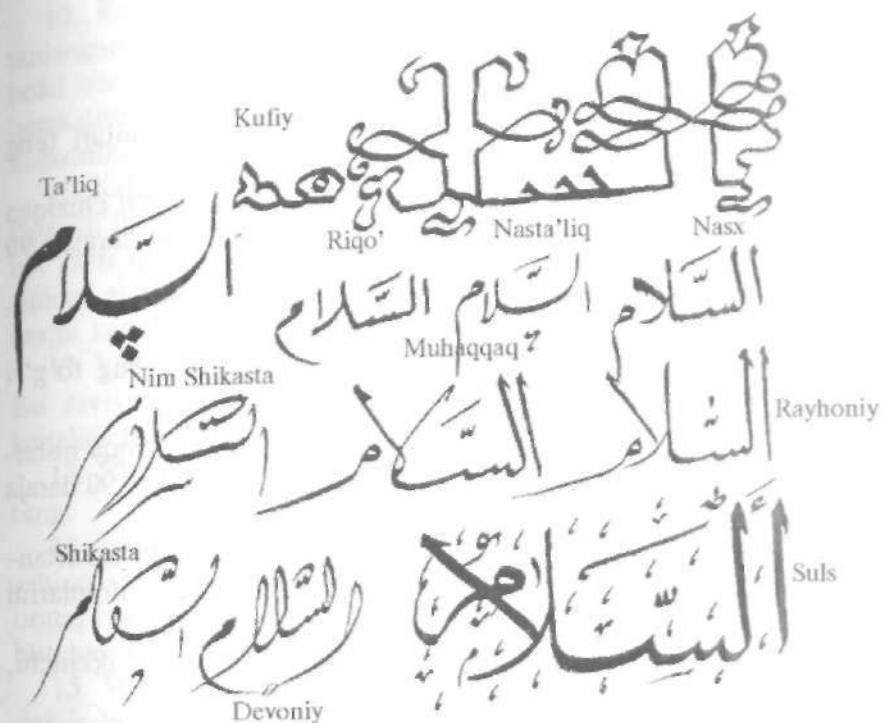 Kufiy
Ta'liq
Riqo' Nasta'liq Nasx
السّلام
السَّلام السّلام السَّلام
Muhaqqaq
Nim Shikasta
السّلام السَّلام السَّلام
Rayhoniy
Shikasta
السّلام السّلام السَّلام
Suls
Devoniy